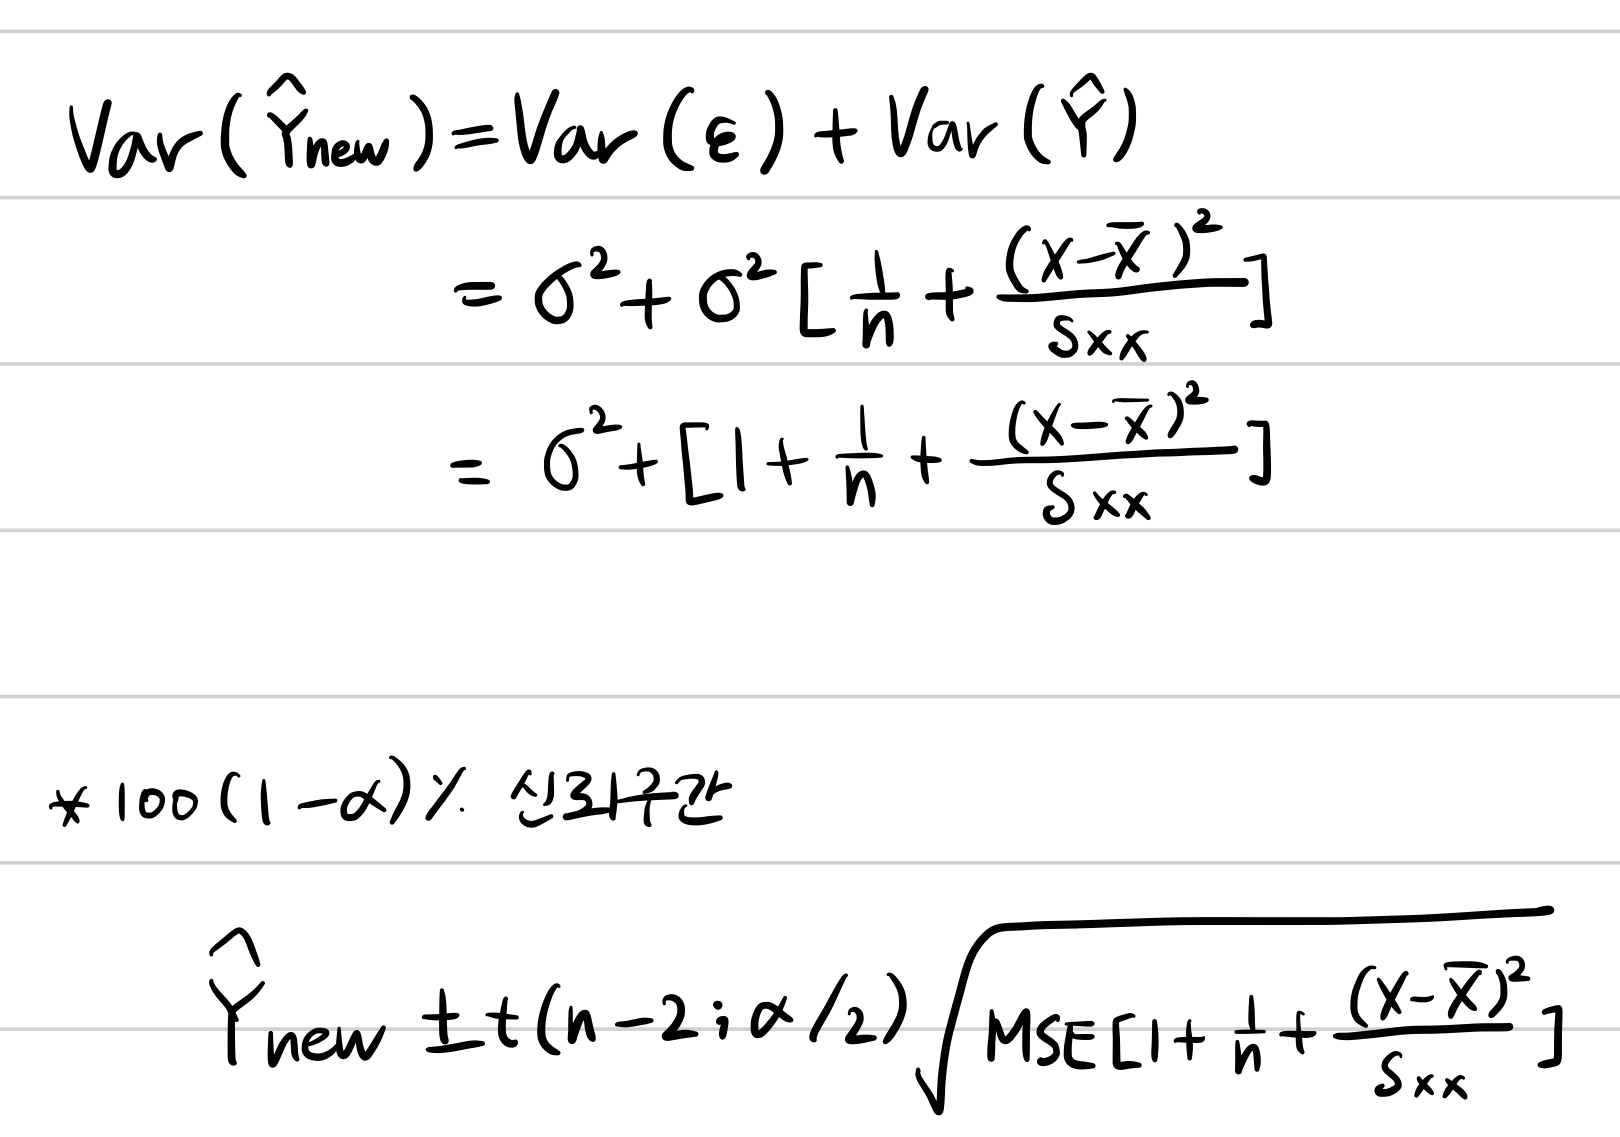 Var(Ŷnew) = Var(ε) + Var(Ŷ)
= σ² + σ² [1/n + (X-X̄)²/Sxx]
= σ² + [1 + 1/n + (X-X̄)²/Sxx]
* 100(1-α)% 신뢰구간
Ŷnew ± t(n-2; α/2) √(MSE[1 + 1/n + (X-X̄)²/Sxx])